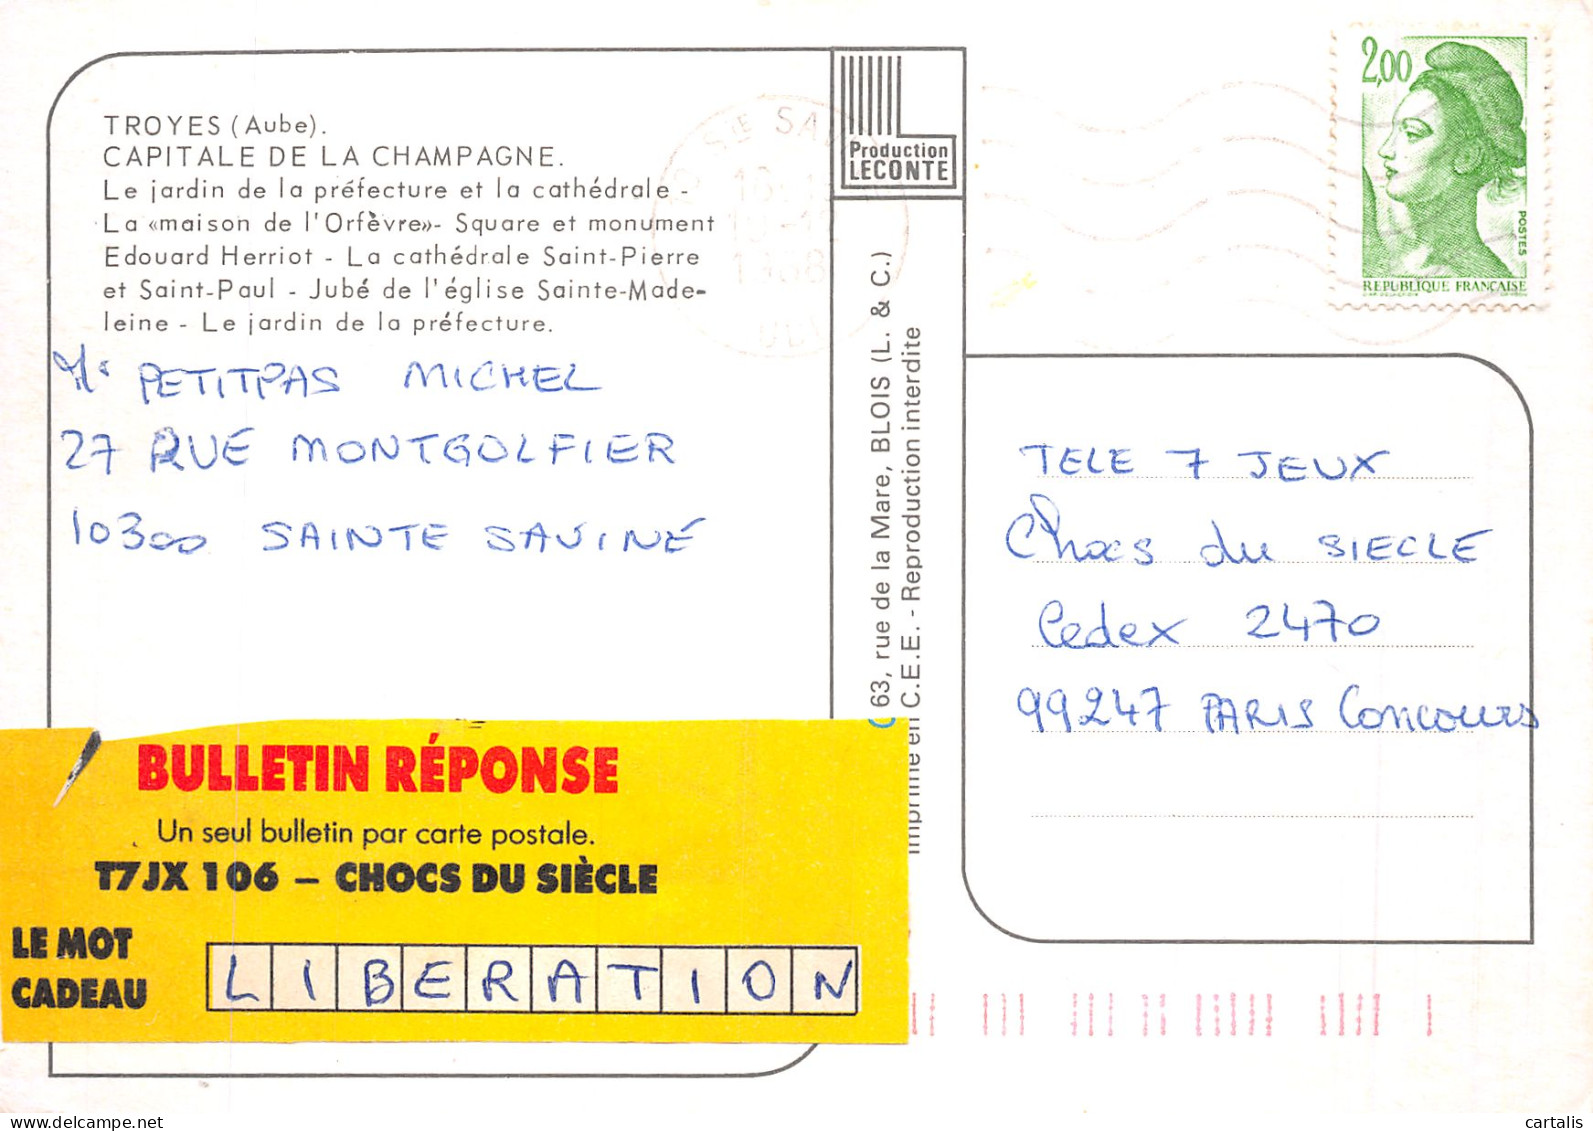 TROYES (Aube).
CAPITALE DE LA CHAMPAGNE.
Le jardin de la préfecture et la cathédrale -
La «maison de l'Orfèvre»- Square et monument
Edouard Herriot - La cathédrale Saint-Pierre
et Saint-Paul - Jubé de l'église Sainte-Made-
leine - Le jardin de la préfecture.
Mr PETITPAS MICHEL
27 RUE MONTGOLFIER
10300 SAINTE SAVINE
BULLETIN RÉPONSE
Un seul bulletin par carte postale.
T7JX 106 – CHOCS DU SIÈCLE
LE MOT
CADEAU
LIBERATION
Production
LECONTE
63, rue de la Mare, BLOIS (L. & C.)
Imprimé en C.E.E. - Reproduction interdite
2,00
POSTES
REPUBLIQUE FRANÇAISE
TELE 7 JEUX
Chocs du SIECLE
Cedex 2470
99247 PARIS Concours
delcampe.net
cartalis